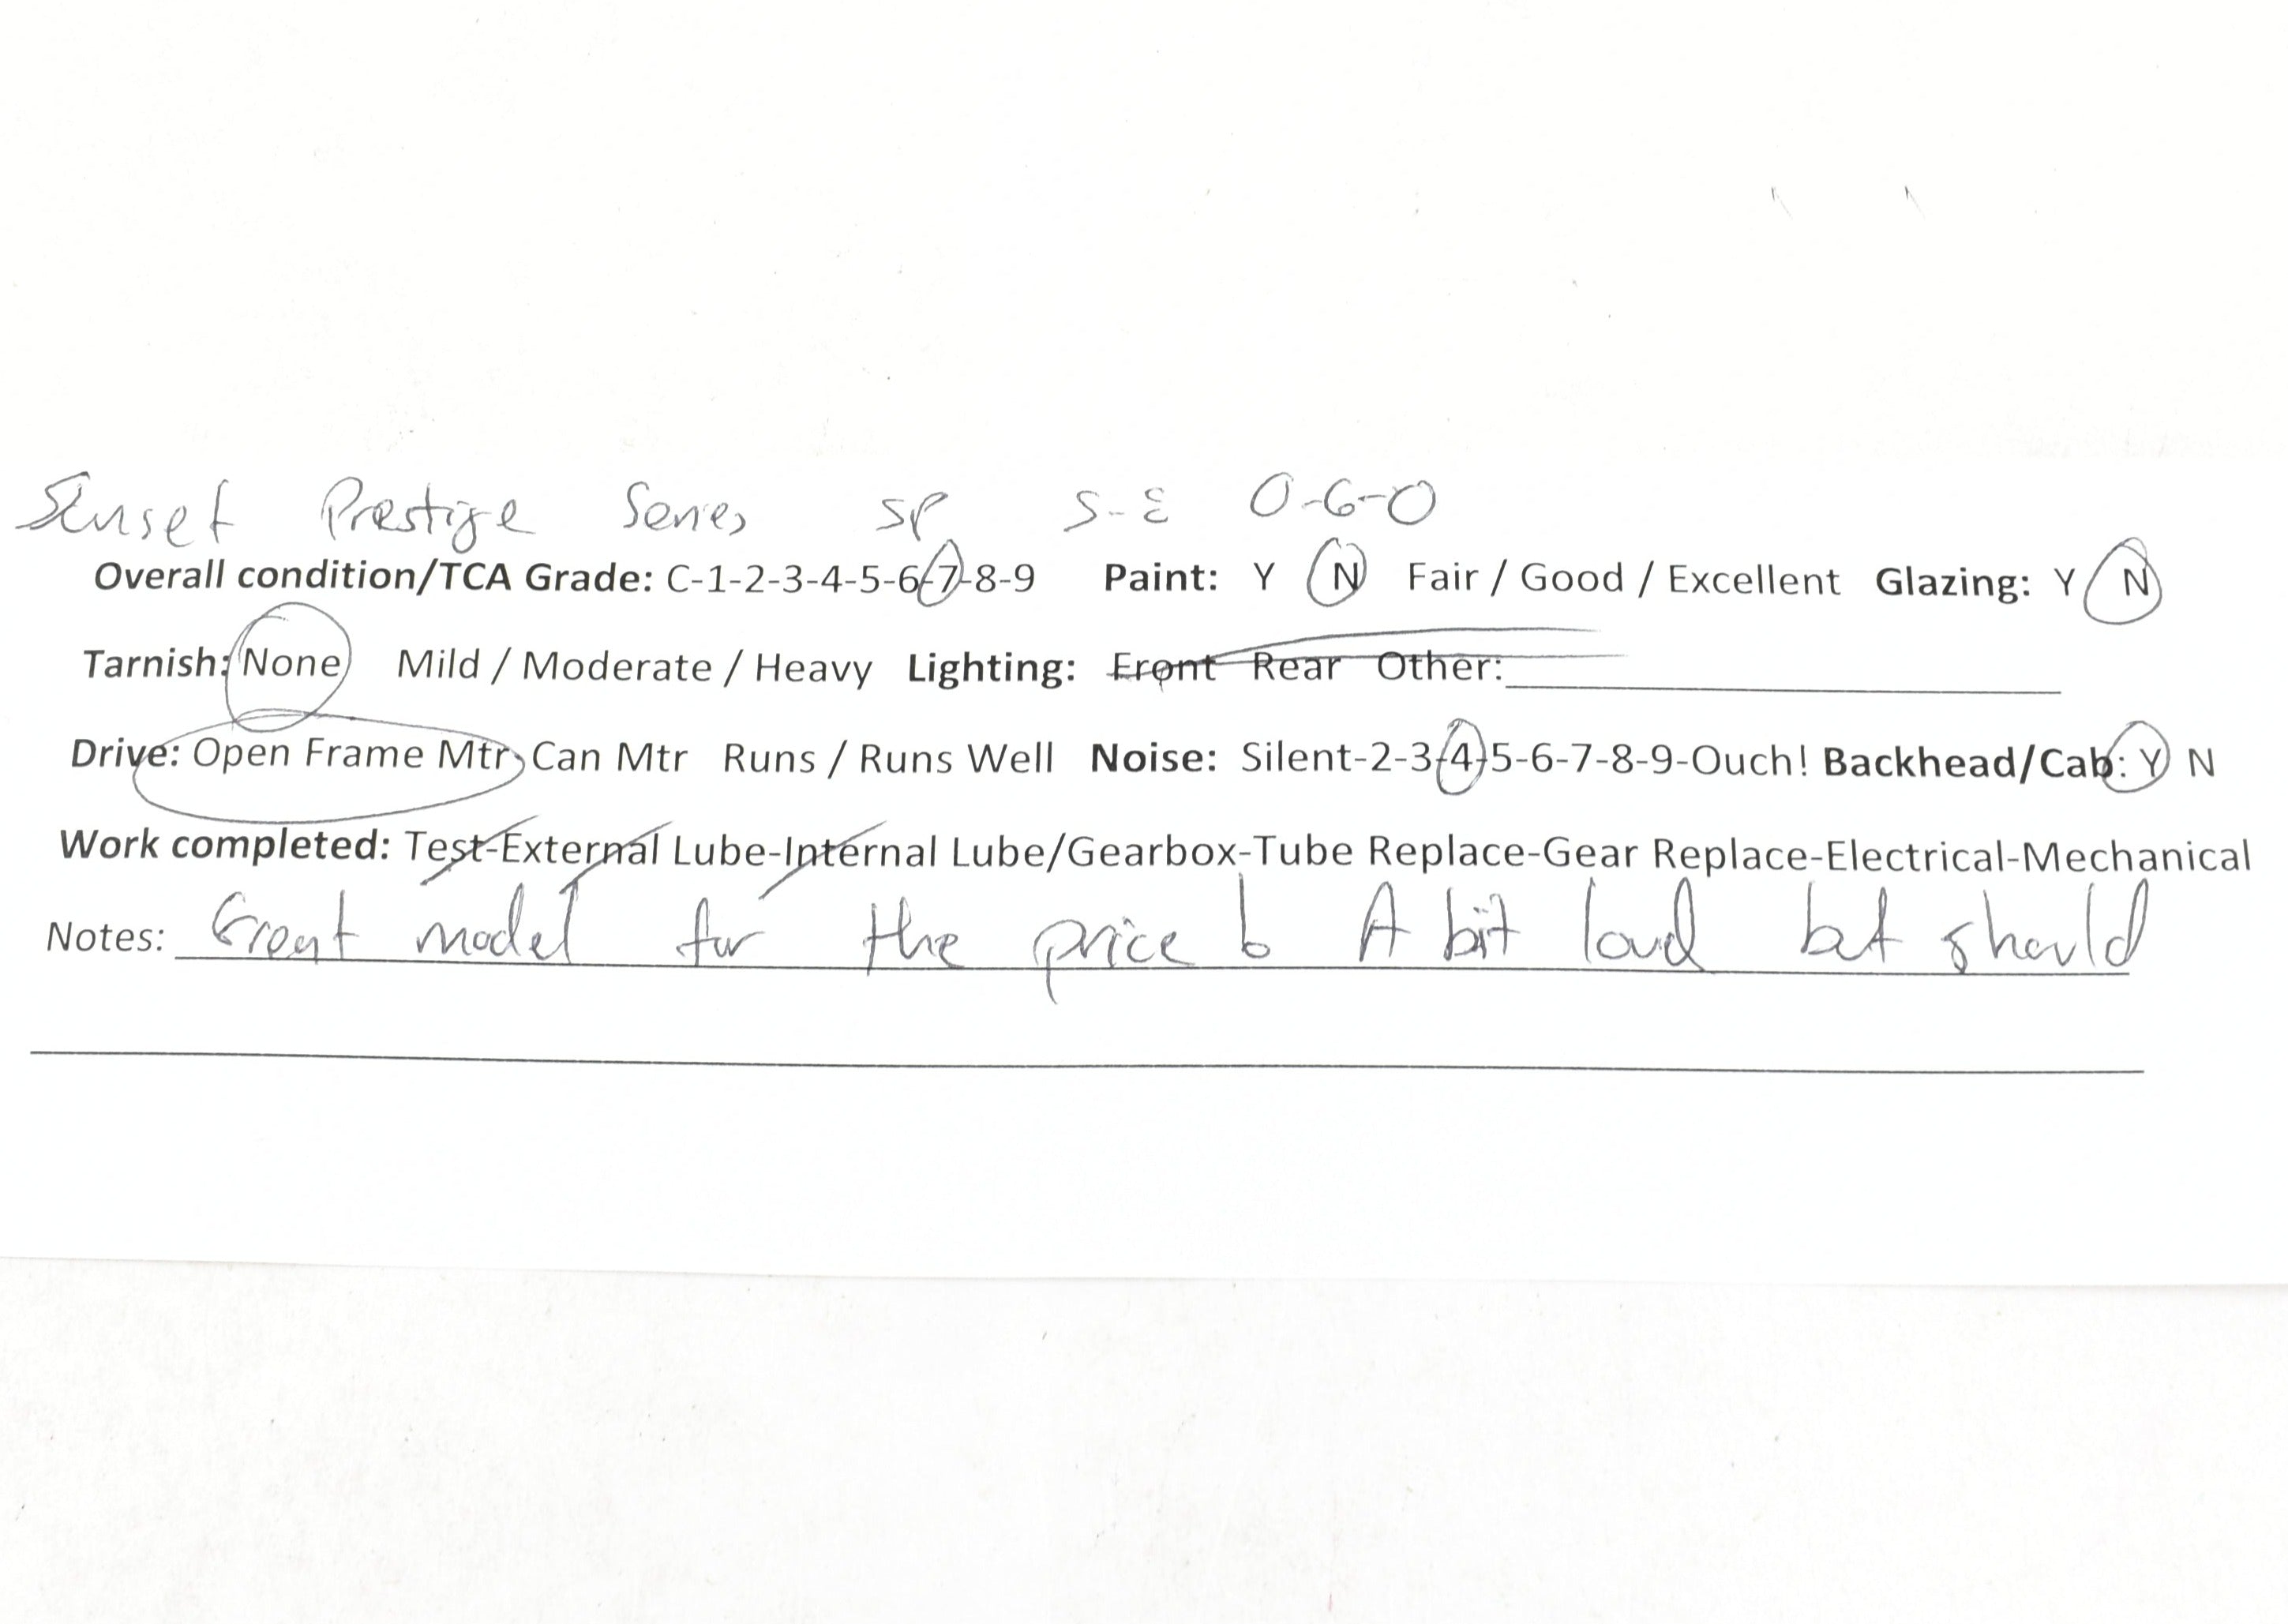 Sunset Prestige Series SP S-8 0-6-0
Overall condition/TCA Grade: C-1-2-3-4-5-6-7-8-9 Paint: Y N Fair / Good / Excellent Glazing: Y N
Tarnish: None Mild / Moderate / Heavy Lighting: Front Rear Other:
Drive: Open Frame Mtr Can Mtr Runs / Runs Well Noise: Silent-2-3-4-5-6-7-8-9-Ouch! Backhead/Cab: Y N
Work completed: Test-External Lube-Internal Lube/Gearbox-Tube Replace-Gear Replace-Electrical-Mechanical
Notes: Great model for the price A bit loud but should